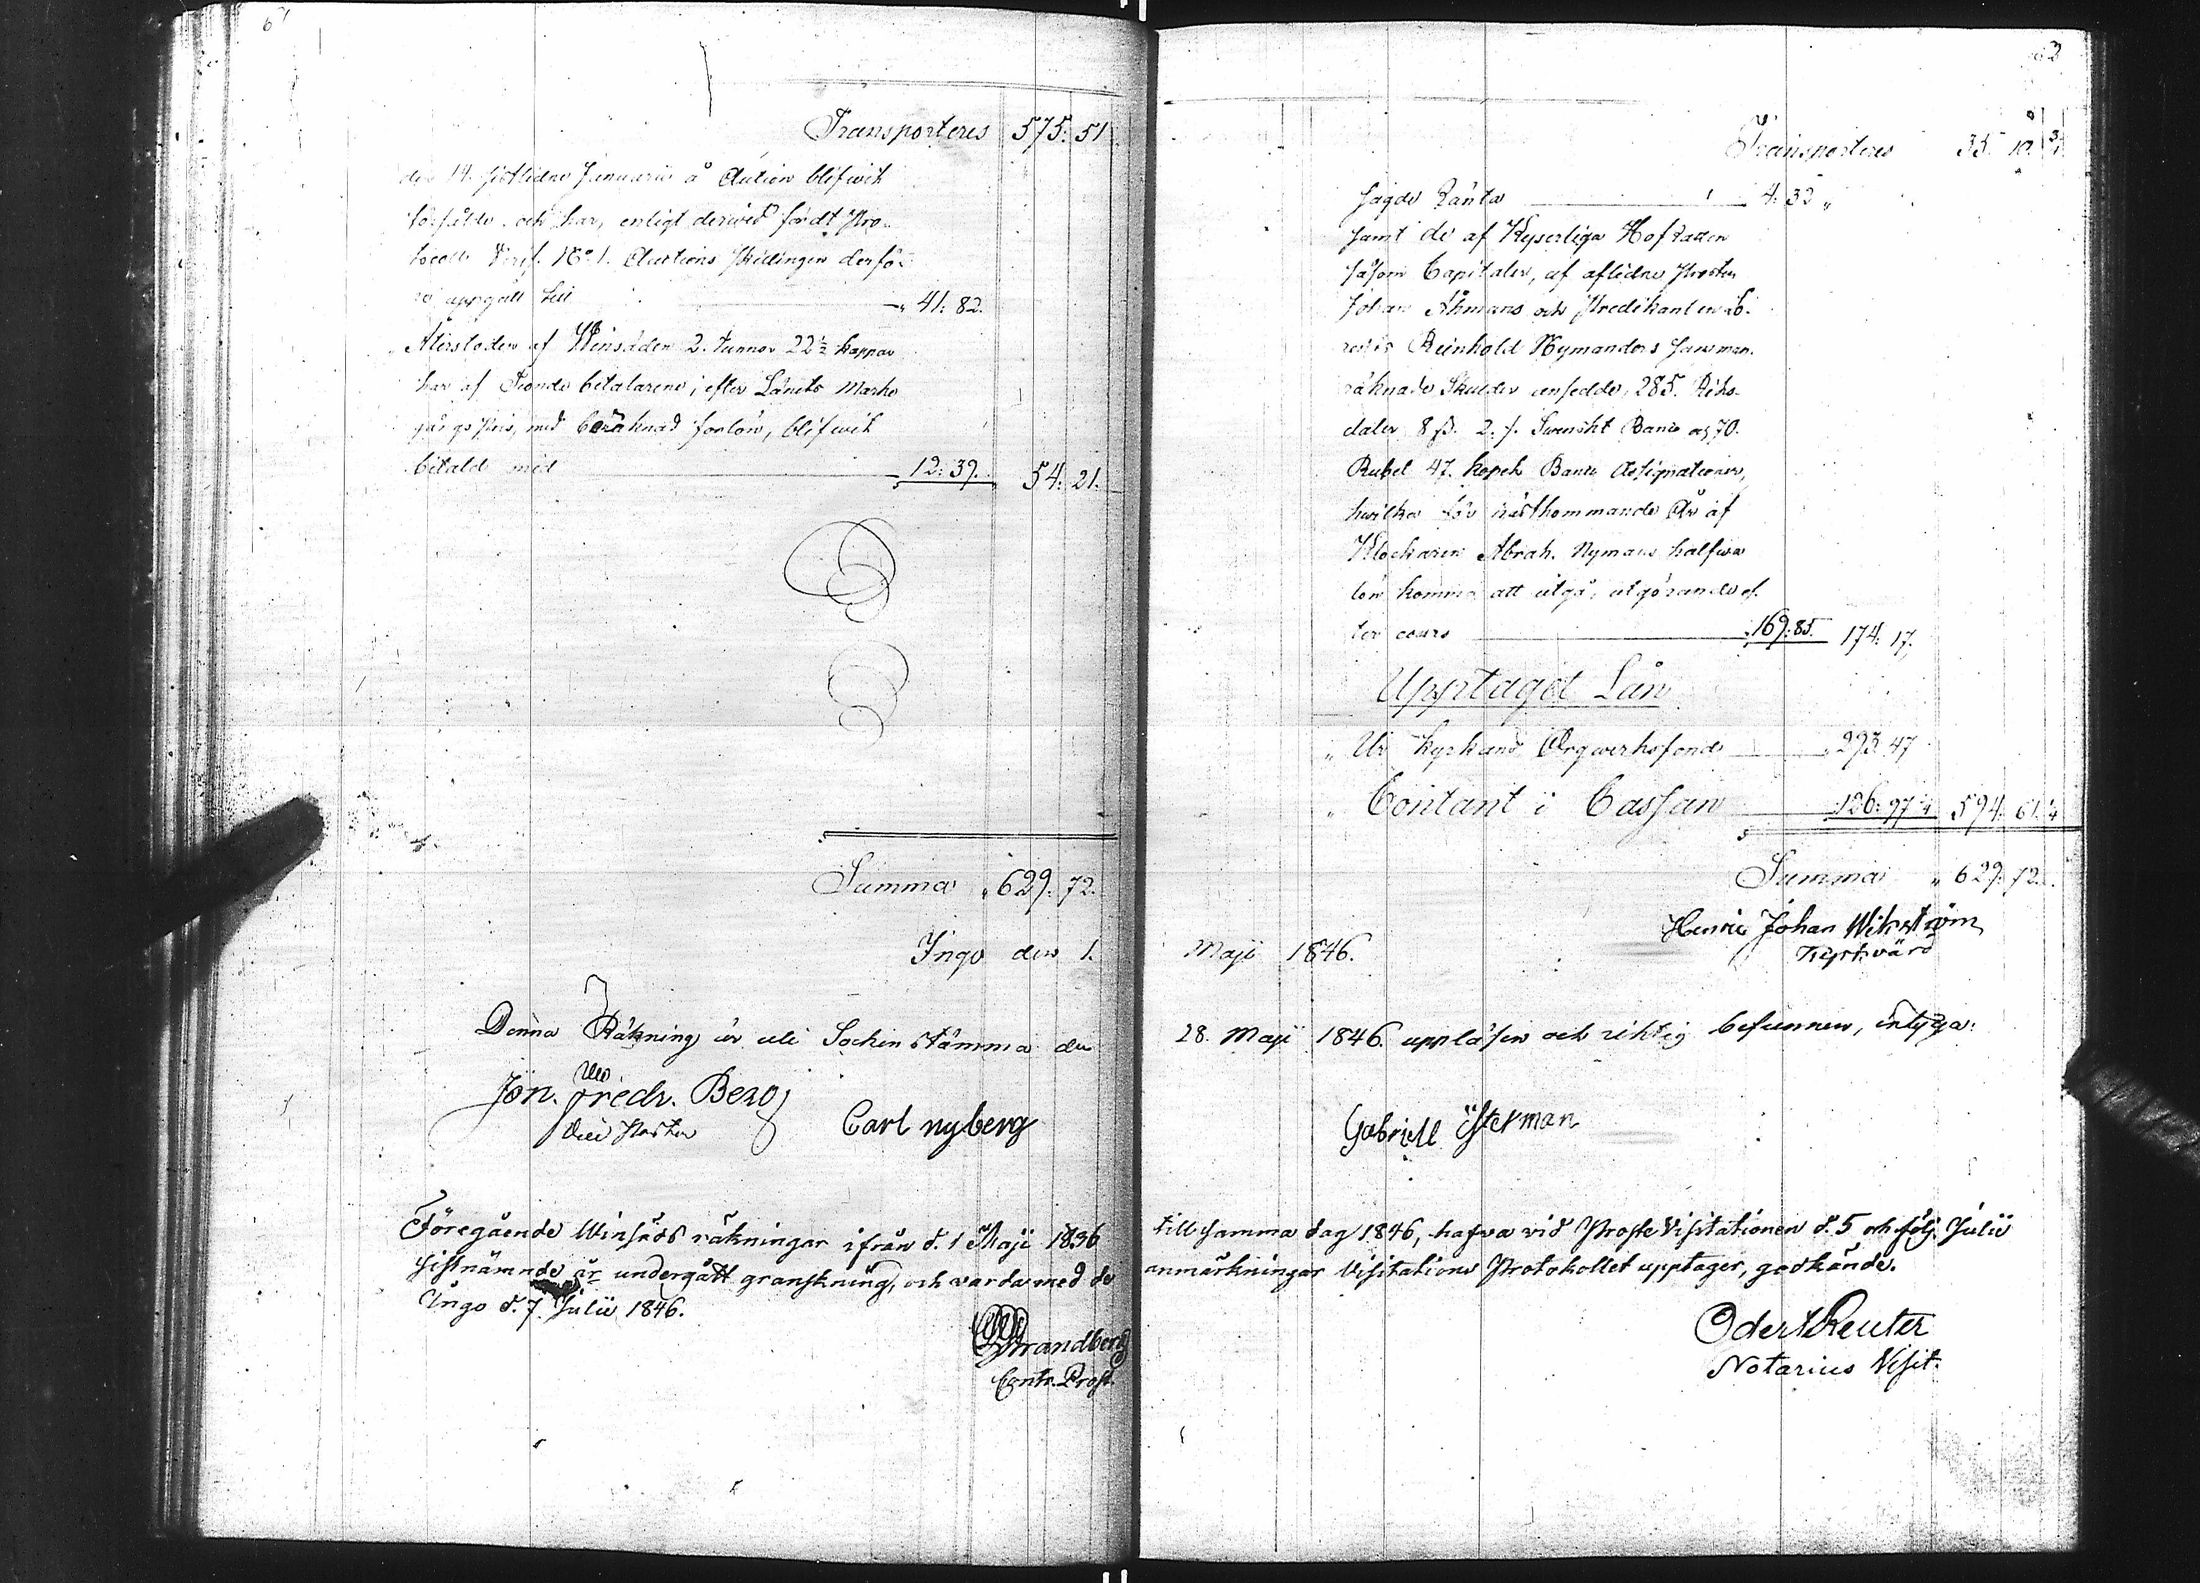 61
Transporteres 575: 51
den 14. sistledne Januarii å Auction blifwit
försålde. och har, enligt derwid fördt Pro-
tocoll Verif. No. 1. Auctions skillingen derfö-
re uppgått till " 41: 82.
Återstoden af Winsäden 2. tunnor 22½ kappar
har af Tionde betalarene, efter Länets Marke
gångs pris, med beräknad forlön, blifwit
betald med 12: 39. 54: 21.
Summa " 629: 72.
Ingo den 1.
Denna Räkning är uti Sockenstämma den
Jon. Fredr. Berg
Vice Pastor
Carl nyberg
Föregående Winsäds räkningar ifrån d. 1 Maji 1836
sistnämnde år undergått granskning, och warda med de
Ingo d. 7. Julii 1846.
Strandberg
Contr. Prost.
63
Transporteres 35. 10. ¾
sagde Ränta 4: 32 "
samt de af Keyserliga Hofrätten
såsom Capitaler, af aflidne Prosten
Johan Åhmans och Predikanten Lo-
rentz Reinhold Nymanders samman-
räknade Skulder ansedde, 285. Riks-
daler 8 ß. 2. r. Swenskt Banco och 70.
Rubel 47. kopek Banco Assignationer,
hwilka för nästkommande År af
Klockaren Abrah. Nymans halfwa
lön komma att utgå, utgörande ef-
ter cours 169: 85. 174: 17.
Upptaget Lån
" Ur kyrkans Orgwerksfond " 293: 47
" Contant i Cassan 126: 97¼ 594: 61. ¼
Summa " 629: 72.
Henric Johan Wikström
Kyrkvärd
Maji 1846.
28. Maji 1846. uppläsen och riktig befunnen, intyga:
Gabriell Österman
till samma dag 1846, hafva vid Proste Visitationen d. 5 och följ. Julii
anmärkningar Visitations Protokollet upptager, godkände.
Odert Reuter
Notarius Visit.